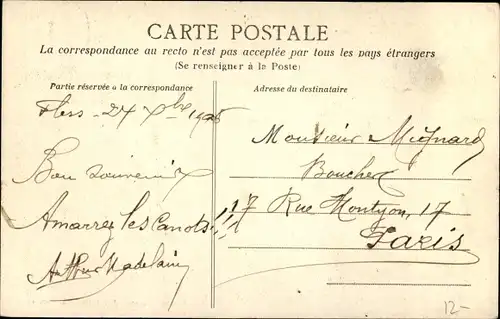 CARTE POSTALE
La correspondance au recto n'est pas acceptée par tous les pays étrangers
(Se renseigner à la Poste)
Partie réservée à la correspondance
Adresse du destinataire
Flers 27 Xbre 1905
Monsieur Mignard
Boucher
Bon souvenir
17 Rue Montyon, 17
Amarrez les Canots!!!
Paris
Arthur Madelaine
12-